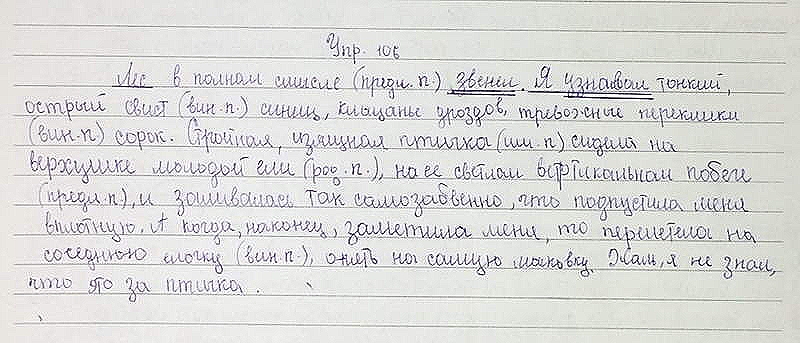 Упр. 106
Лес в полном смысле (предл.п.) звенел. Я узнавал тонкий,
острый свист (вин.п.) синиц, клыцанье дроздов, тревожные переклики
(вин.п) сорок. Стройная, изящная птичка (им.п) сидела на
верхушке молодой ели (род.п.), на ее светлом вертикальном побеге
(предл.п.), и заливалась так самозабвенно, что подпустила меня
вплотную. А когда, наконец, заметила меня, то перелетела на
соседнюю елочку (вин.п.), опять на самую маковку. Жаль, я не знал,
что это за птичка.